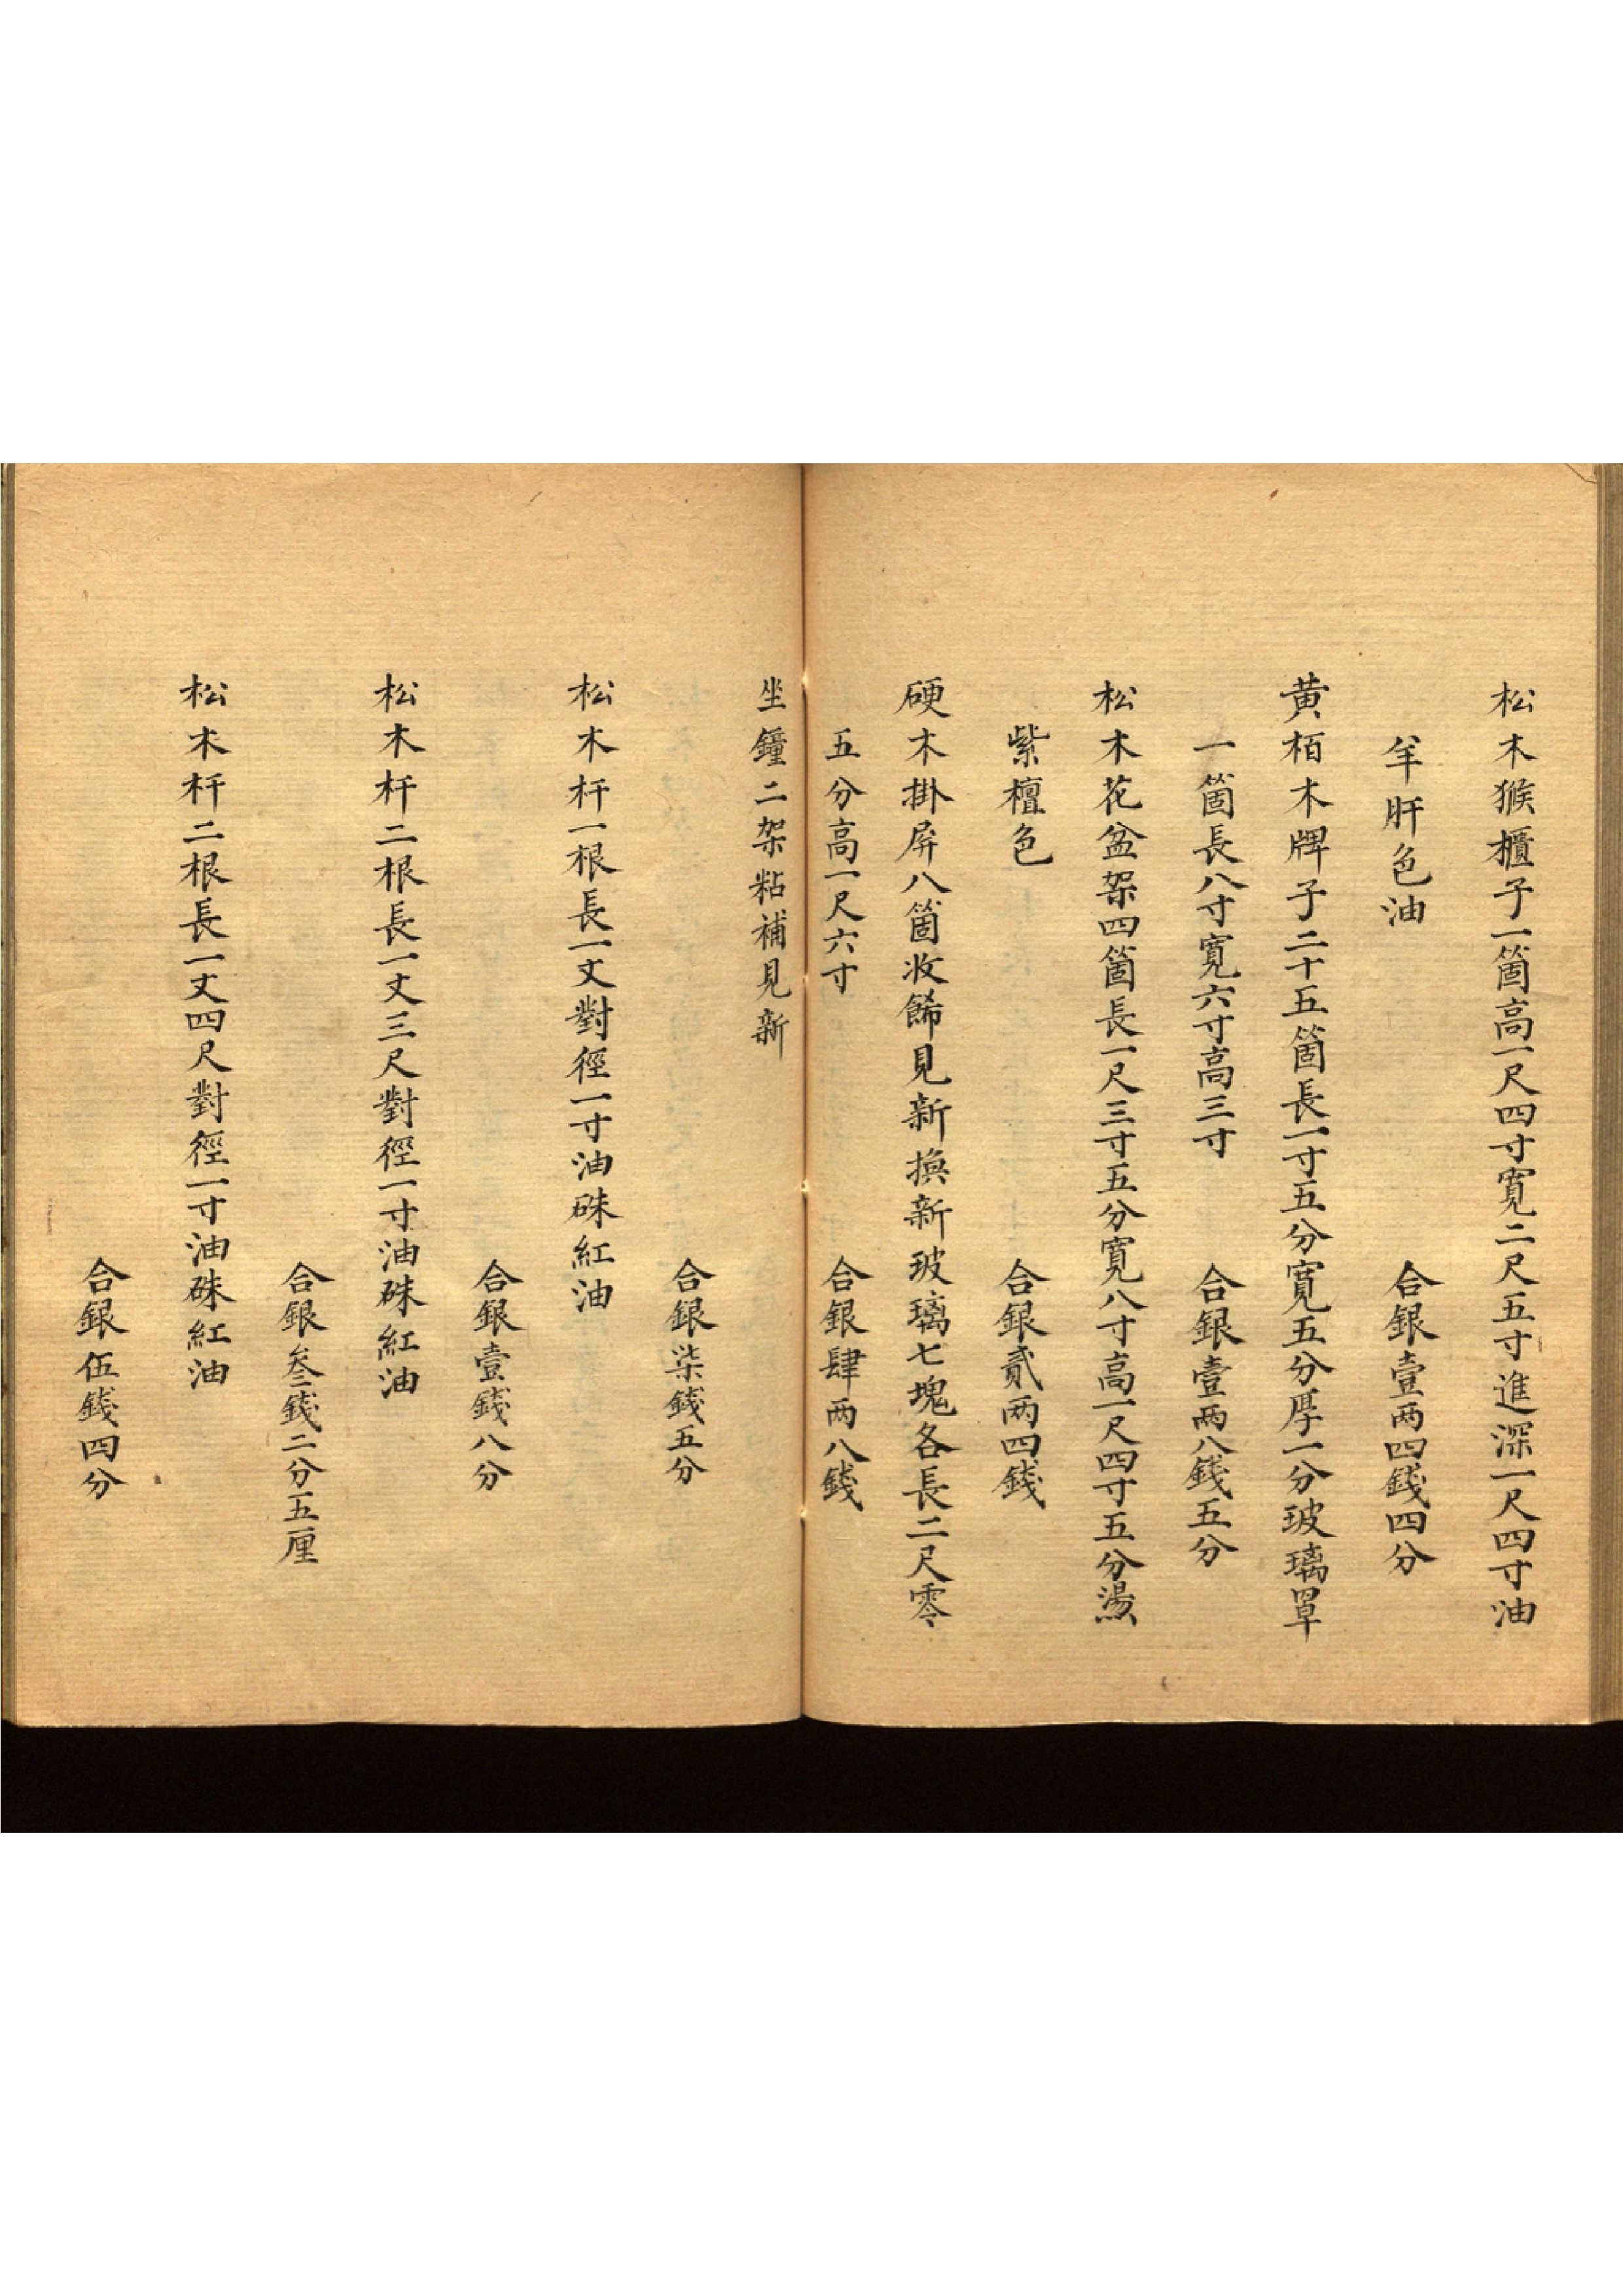 松木猴櫃子一箇高一尺四寸寬二尺五寸進深一尺四寸油
羊肝色油
合銀壹两四錢四分
黄栢木牌子二十五箇長一寸五分寬五分厚一分玻璃罩
一箇長八寸寬六寸高三寸
合銀壹两八錢五分
松木花盆架四箇長一尺三寸五分寬八寸高一尺四寸五分燙
紫檀色
合銀貳两四錢
硬木掛屏八箇收餙見新換新玻璃七塊各長二尺零
五分高一尺六寸
合銀肆两八錢
坐鐘二架粘補見新
合銀柒錢五分
松木杆一根長一丈對徑一寸油硃紅油
合銀壹錢八分
松木杆二根長一丈三尺對徑一寸油硃紅油
合銀叁錢二分五厘
松木杆二根長一丈四尺對徑一寸油硃紅油
合銀伍錢四分